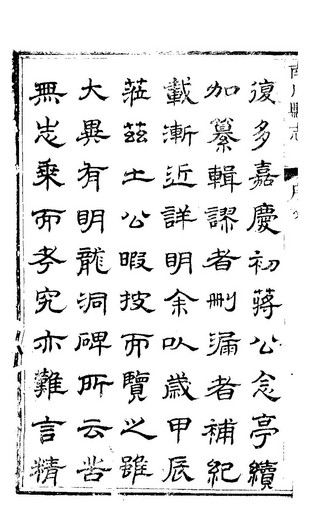 南川縣志
復多嘉慶初蔣公念亭續
加纂輯謬者刪漏者補紀
載漸近詳明余以歲甲辰
蒞茲土公暇披而覽之雖
大異有明龍洞碑所云苦
無志乘而考究亦難言精